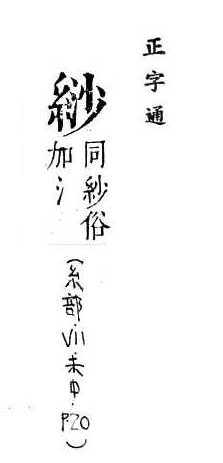 正字通
同紗俗
加氵
(糸部·VII·未中·P20)